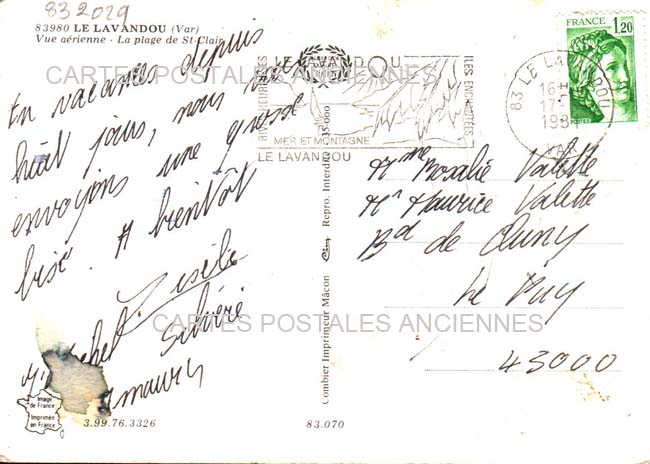 83 2029
83980 LE LAVANDOU (Var)
Vue aérienne - La plage de St-Clair
En vacances depuis
huit jours, nous vous
envoyons une grosse
bise. A bientôt
Gisèle
Michel Silvère
Amaury
Image
de France
Imprimée
en France
3.99.76.3326
83.070
Combier Imprimeur Mâcon Repro. Interdite 35.000
LE LAVANDOU
MER ET MONTAGNE
LE LAVANDOU
83 LE LAVANDOU
16H
17-
198
VAR
FRANCE
1,20
POSTES
Mme Rosalie Valette
Mr Maurice Valette
Bd de Cluny
Le Puy
43000
CARTES POSTALES ANCIENNES
CARTES POSTALES ANCIENNES